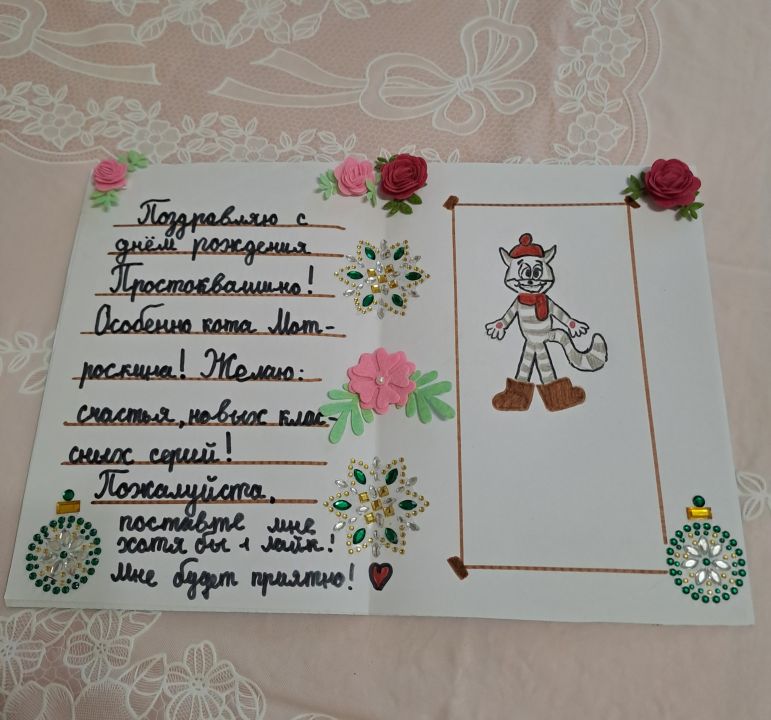 Поздравляю с
днём рождения
Простоквашино!
Особенно кота Мат-
роскина! Желаю:
счастья, новых клас-
сных серий!
Пожалуйста,
поставте мне
хотя бы 1 лайк!
Мне будет приятно!